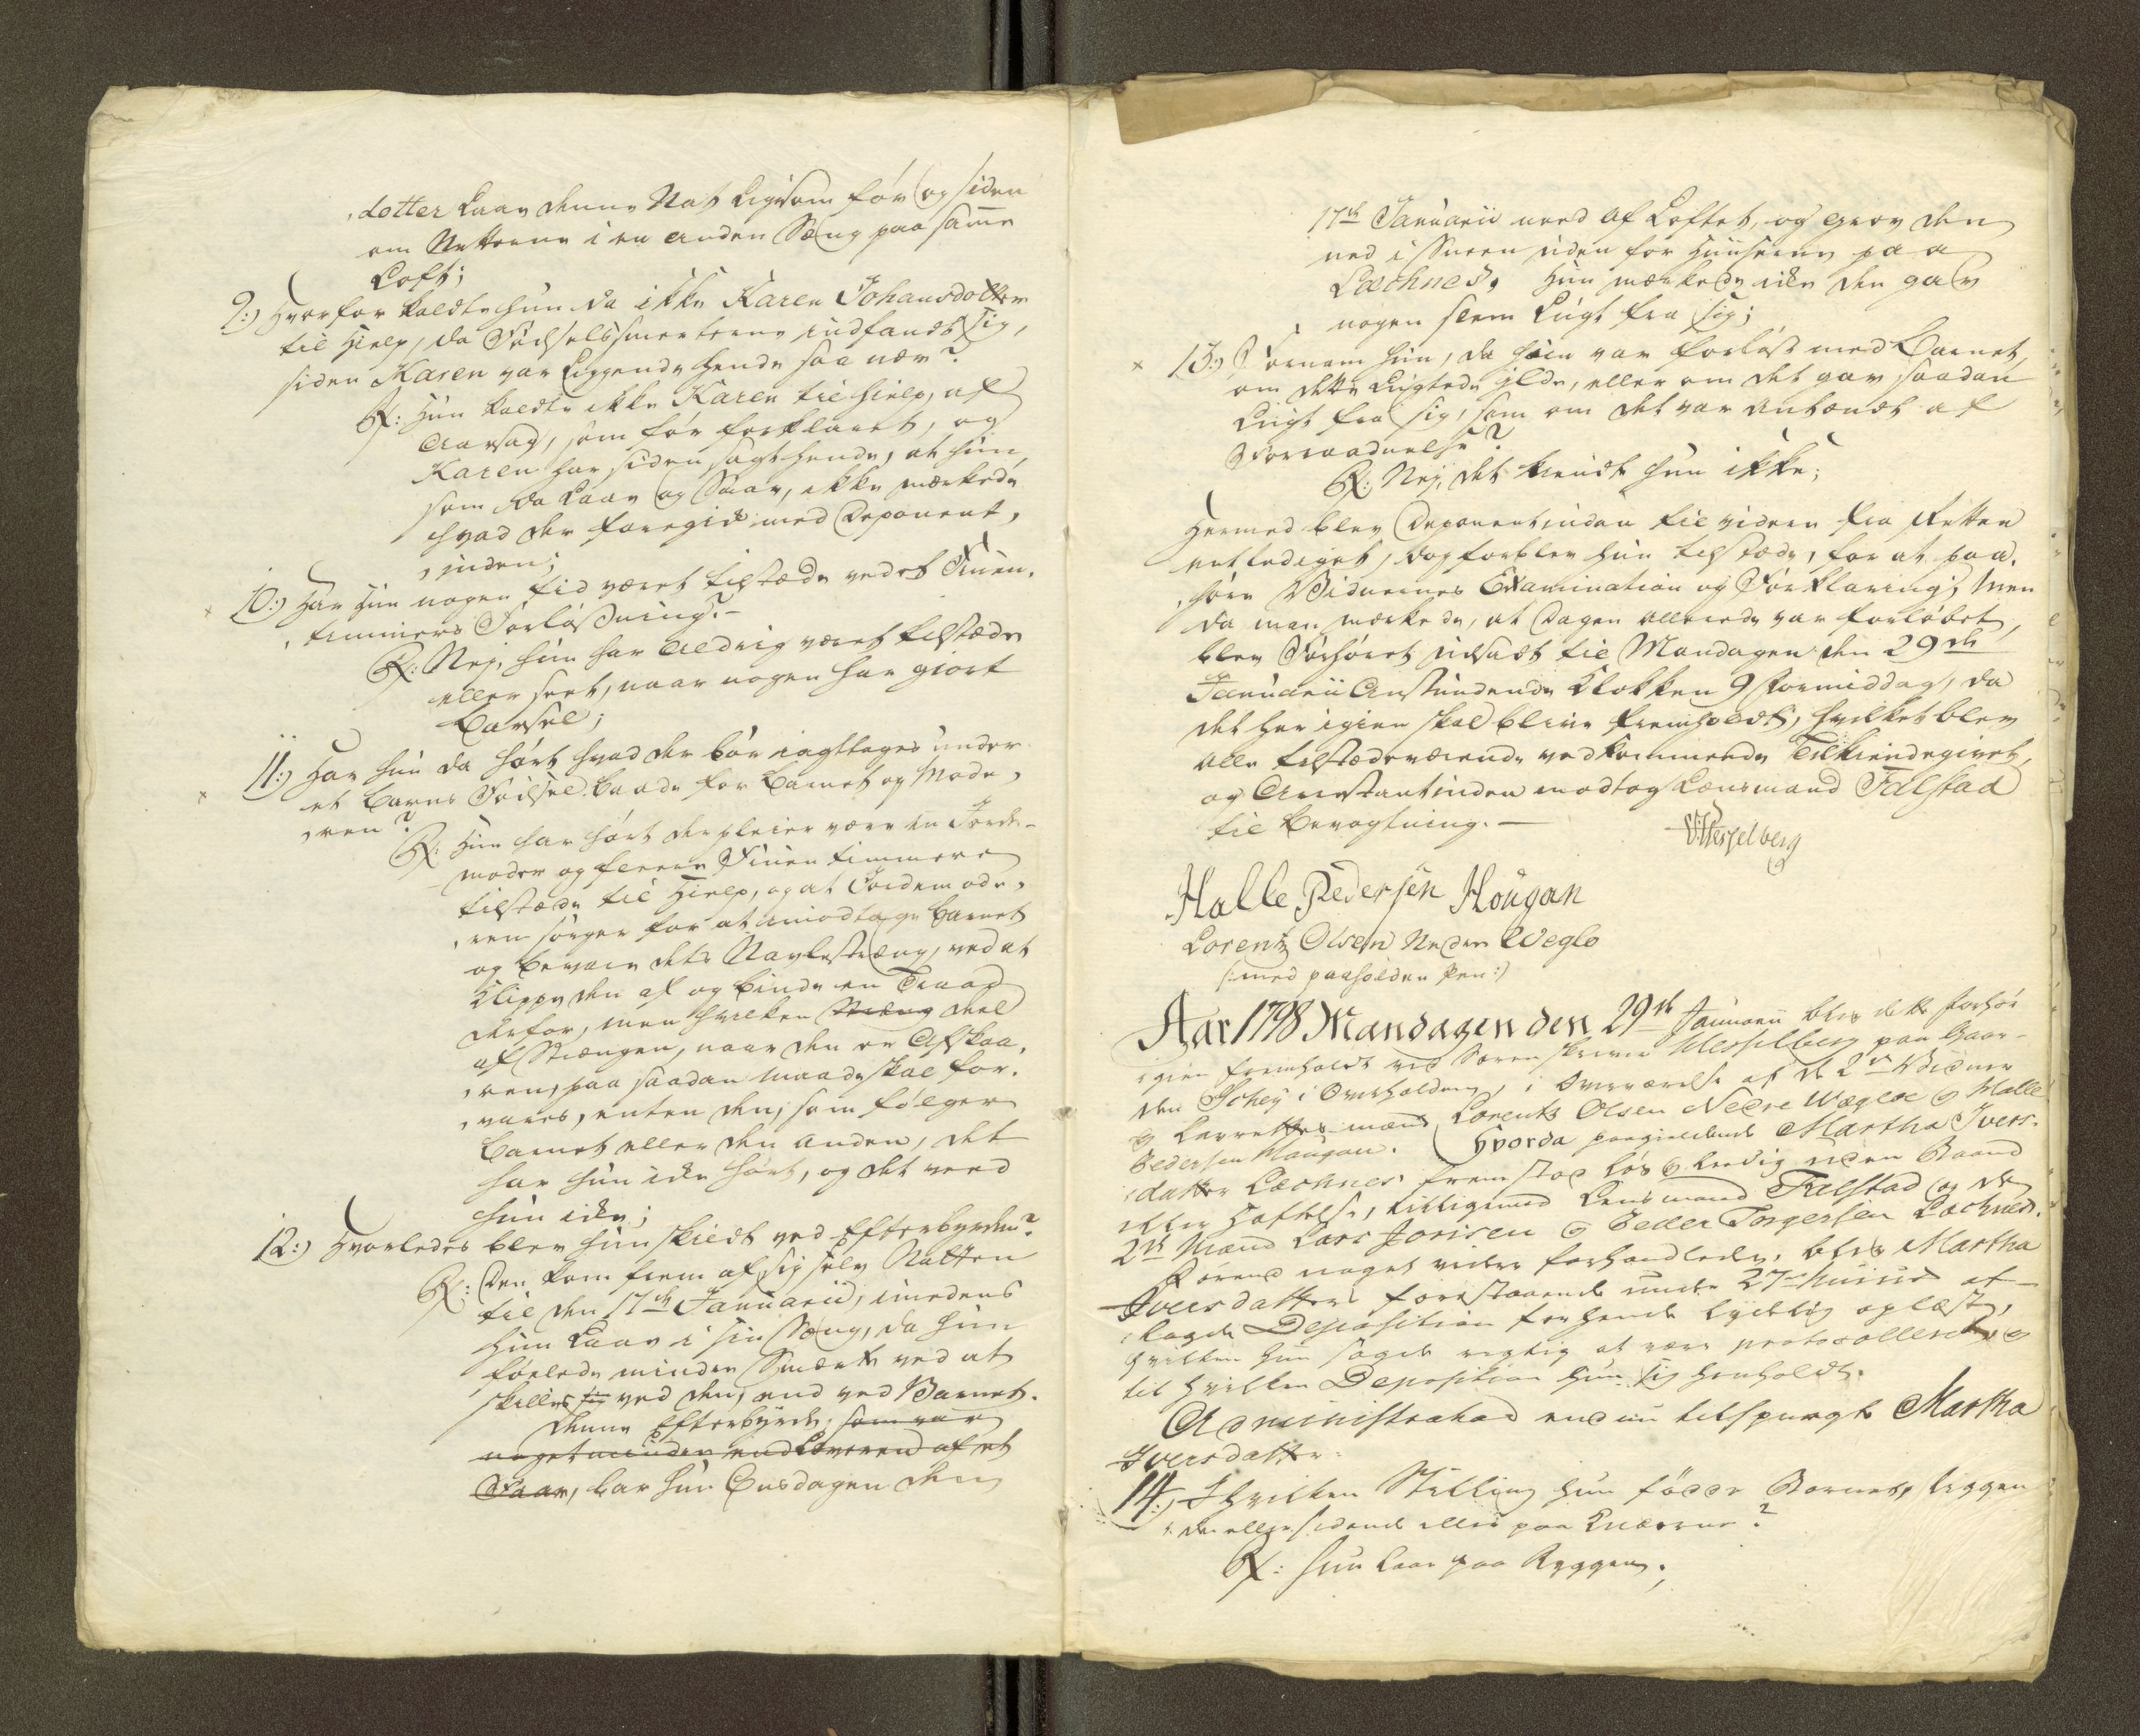 dotter laae denne Nat ligesom før og siden
om Nætterne i en anden Sæng paa samme
Loft;
9:) Hvorfor kaldte hun da ikke Karen Johansdotter
til Hielp, da Fødselssmerterne indfandt sig,
siden Karen var liggende hende saa nær?
R: Hun kaldte ikke Karen til Hielp, af
Aarsag, som før forklaret, og
Karen har siden sagt hende, at hun,
som da laae og Saae, ikke mærkede
hvad der foregik med Deponent,
,inden;
10:) Har hun nogen tid været tilstæde ved et Fruen,
,timmers Forløsning? -
R: Nej, hun har aldrig været tilstæde
eller seet, naar nogen har giort
Barsel;
11:) Har hun da hørt hvad der bør iagttages under
et Barns Fødsel baade for Barnet og Mode,
,ren?
R: Hun har hørt der pleier være en Jorde-
moder og fleere Fruentimmere
tilstæde til Hielp, og at Jordemode,
,ren sørger for at imodtage Barnet
og bevare dets Navlestræng, ved at
klippe den af og binde en Traad
derfor, men hvilken Stræng deel
af Strængen, naar den er Afskaa,
,ren, paa saadan Maade skal for,
,vares, enten den, som følger
Barnet eller den anden, det
har hun ikke hørt, og det veed
hun ikke;
12:) Hvorledes blev hun skildt ved Efterbyrden?
R: Den kom frem af sig selv Natten
til den 17de Januarii, imedens
hun laae i sin Sæng, da hun
følede mindre Smerte ved at
skilles sig ved den, end ved Barnet.
Denne Efterbyrde, som var
noget mindre end Leveren af et
Faar, bar hun Onsdagen den
17de Januarii need af Loftet, og grov den
ned i Sneen uden for Huuserne paa
Læchnes, hun mærkede ikke den gav
nogen slem Lugt fra sig;
13:) Fornam hun, da hun var forløst med Barnet,
om dette lugtede ilde, eller om det gav saadan
Lugt fra sig, som om det var antændt af
Forraadnelse?
R: Nej, det kiendte hun ikke;
Hermed blev Deponentinden til videre fra Retten
entlediget, dog forblev hun tilstæde, for at paa,
,høre Vidnernes Examination og Forklaring; Men
da man mærkede, at Dagen allerede var forløbet,
blev Forhøret udsadt til Mandagen den 29de
Januarii Anstundende Klokken 9 Formiddag, da
det her igien skal blive fremholdt, hvilket blev
alle tilstædeværende vedkommende Tilkiendegivet,
og Arrestantinden modtog Lensmand Falstad
til Bevogtning. -
Wesselberg
Halle Pedersen Hougan
Lorentz Olsen Nedre Weglo
(: med paaholden Pen :)
Aar 1798 Mandagen den 29de Januarii blev dette Forhør
igien fremholdt ved Sorenskriver Wesselberg paa Gaar-
den Schey i Overhalden, i Overværelse af de 2de Vidner
og Laurettes mænd Lorentz Olsen Nedre Wægloe og Halle
Pedersen Haugan. Hvorda paagieldende Martha Ivers-
,datter Læchnes fremstod løs og leedig uden Baand
eller Hæftelse, tilligemed Lensmand Falstad og de
2de Mænd Lars Jonsen og Peder Torgersen Læchnes.
Førend noget videre forhandledes, blev Martha
Iversdatters forestaaende under 27de hujus af-
lagde Deposition for hende tydelig oplæst,
hvilken hun sagde rigtig at være protocolleret, og
til hvilken Deposition hun sig henholdt.
Administrator end nu tilspurgte Martha
Iversdatter:
14:) I hvilken Stilling hun fødde Barnet, liggen
,de eller sidende eller paa Knæerne?
R: Hun laae paa Ryggen.;